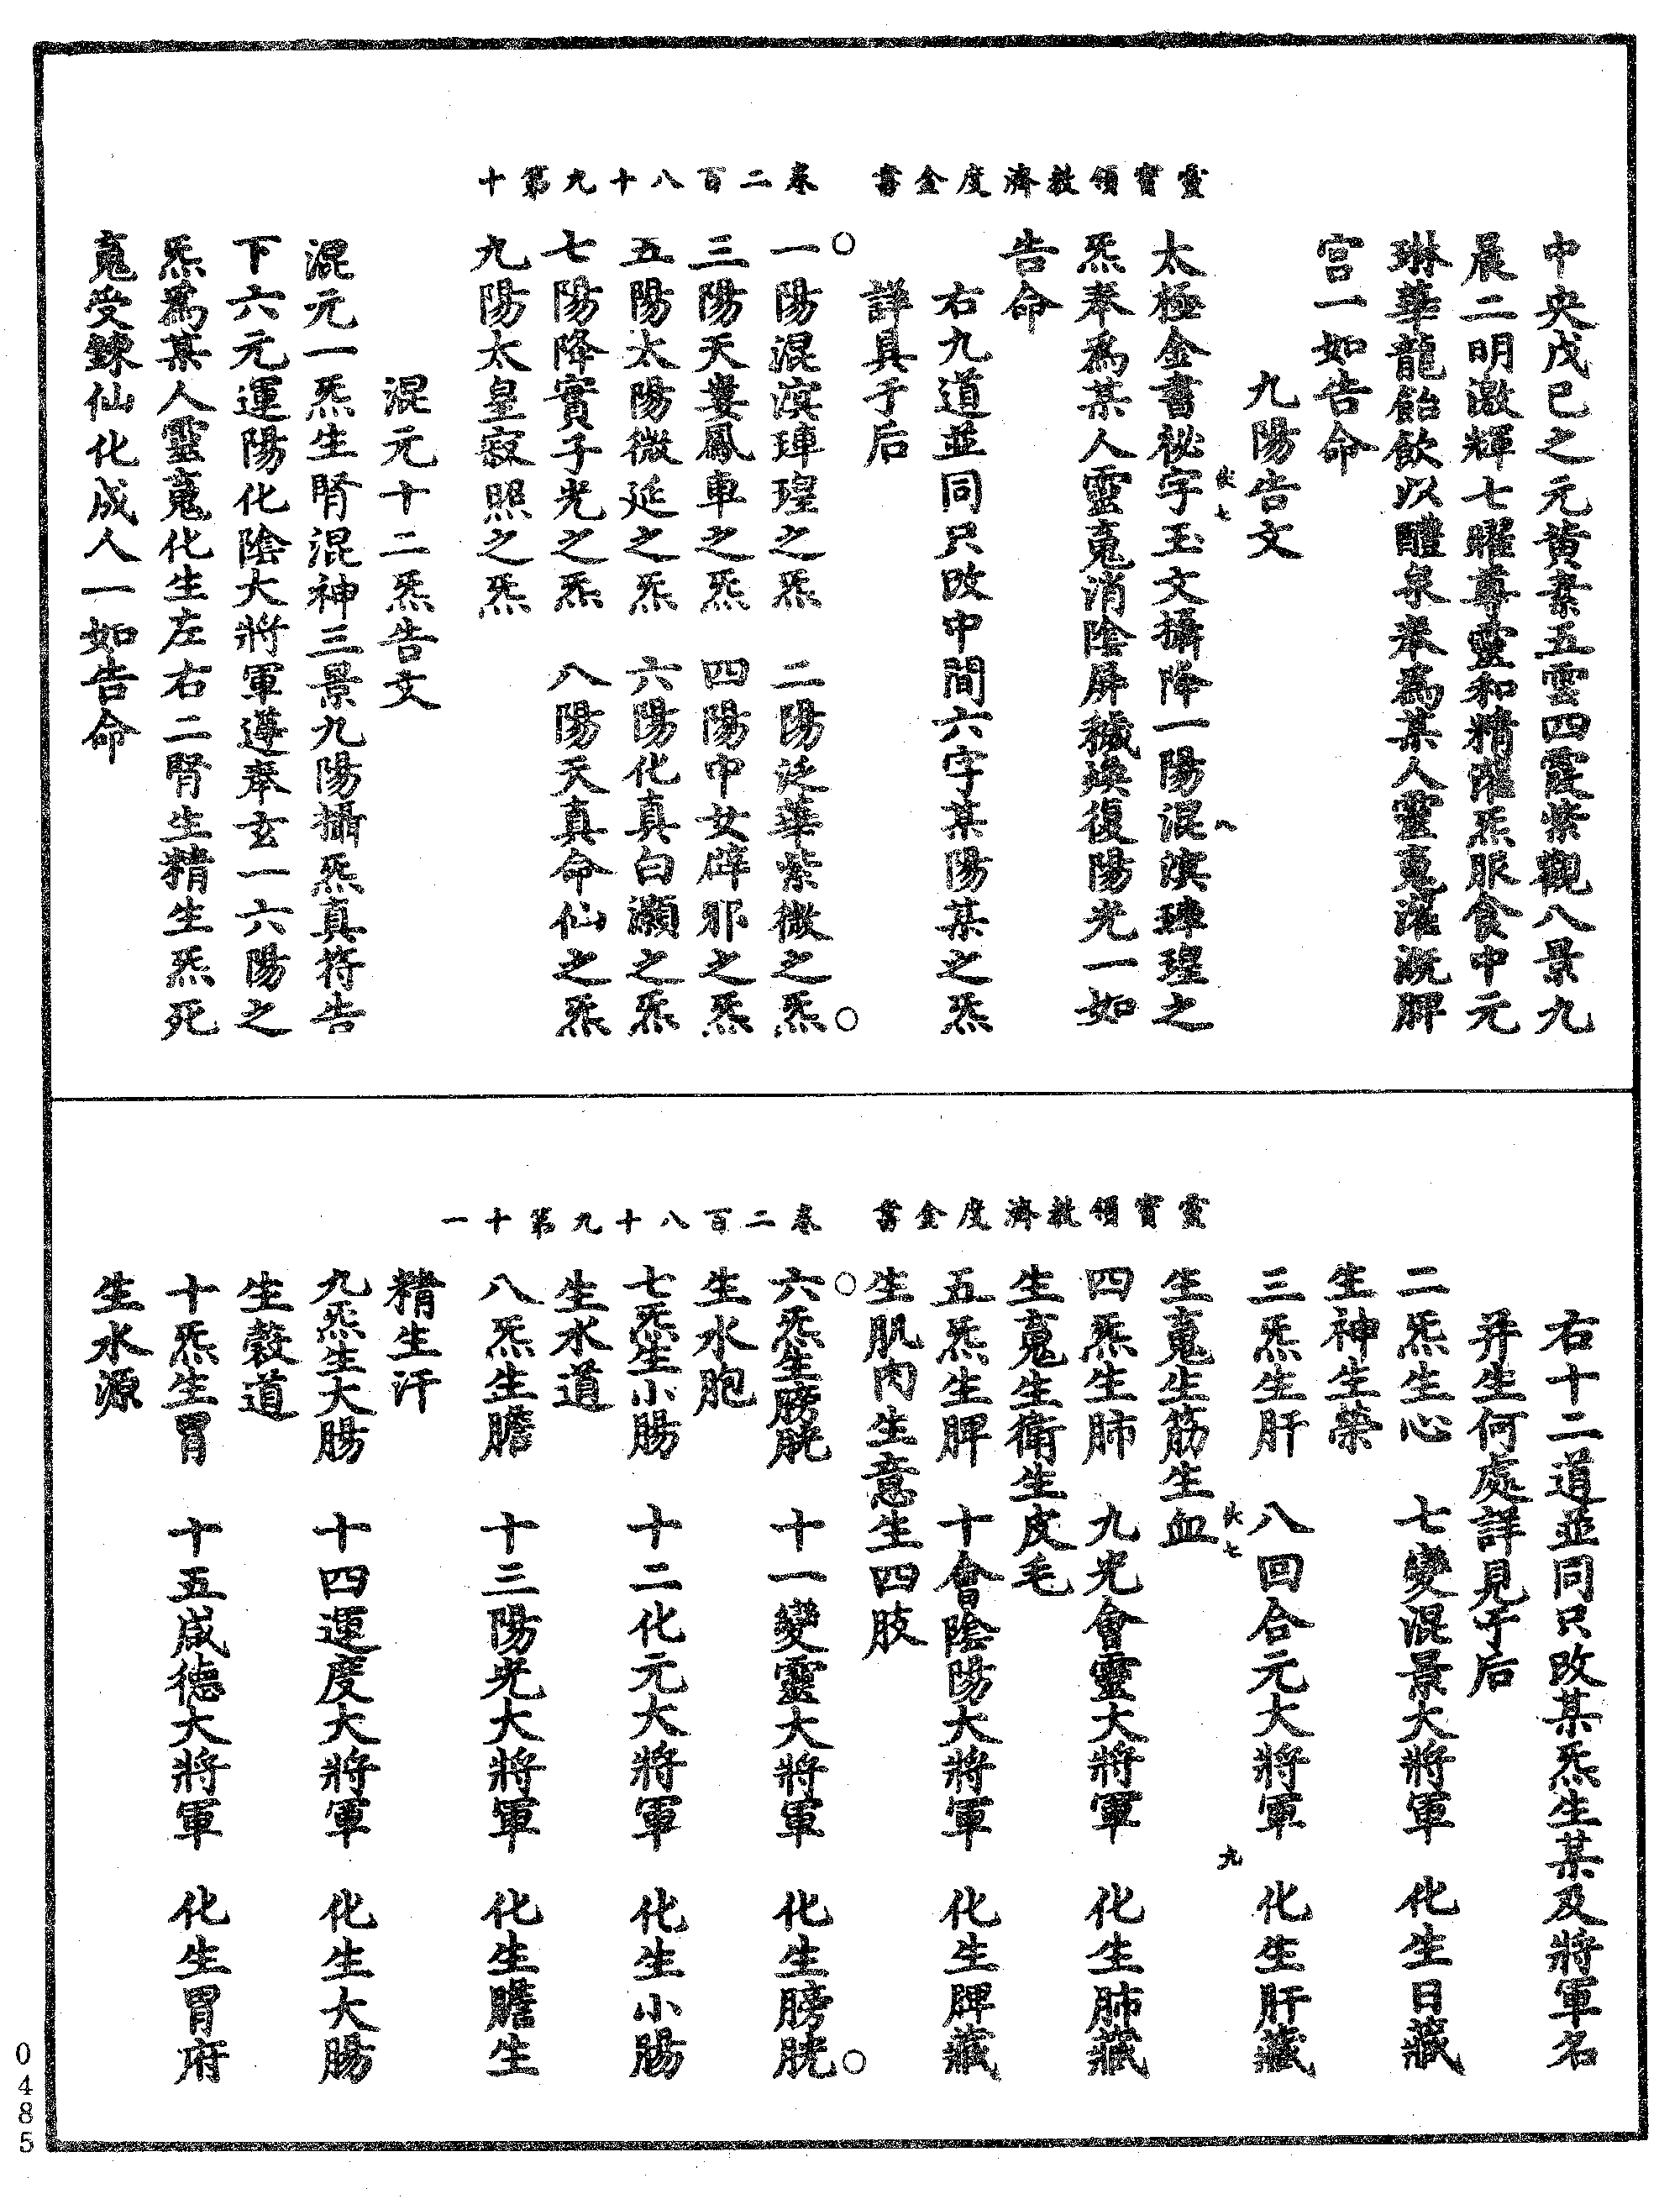 靈寶領教濟度金書　卷二百八十九第十
中央戊己之元黃素五雲四霞紫觀八景九
晨二明激輝七曜尊靈和精灌炁服食中元
琳華龍飴飲以醴泉奉為某人靈䰟灌溉脾
宫一如告命
九陽告文
太極金書祕字玉文攝降一陽混溟琿瑝之
炁奉為某人靈䰟消陰屏穢煥復陽光一如
告命
右九道並同只改中間六字某陽某之炁
詳具于后
一陽混溟琿瑝之炁　二陽泛華紫微之炁
三陽天婁鳳車之炁　四陽中女辟邪之炁
五陽太陽微延之炁　六陽化真白灝之炁
七陽降實子光之炁　八陽天真命仙之炁
九陽太皇寂照之炁
混元十二炁告文
混元一炁生腎混神三景九陽攝炁真符告
下六元運陽化陰大將軍遵奉玄一六陽之
炁為某人靈䰟化生左右二腎生精生炁死
䰟受鍊仙化成人一如告命
靈寶領教濟度金書　卷二百八十九第十一
右十二道並同只改某炁生某及將軍名
并生何處詳見于后
二炁生心　七變混景大將軍　化生日藏
生神生榮
三炁生肝　八回合元大將軍　化生肝藏
生䰟生筋生血
四炁生肺　九光會靈大將軍　化生肺藏
生䰟生衛生皮毛
五炁生脾　十會陰陽大將軍　化生脾藏
生肌肉生意生四肢
六炁生膀胱　十一變靈大將軍　化生膀胱
生水胞
七炁生小腸　十二化元大將軍　化生小腸
生水道
八炁生膽　十三陽光大將軍　化生膽生
精生汗
九炁生大腸　十四運度大將軍　化生大腸
生穀道
十炁生胃　十五威德大將軍　化生胃府
生水源
0485